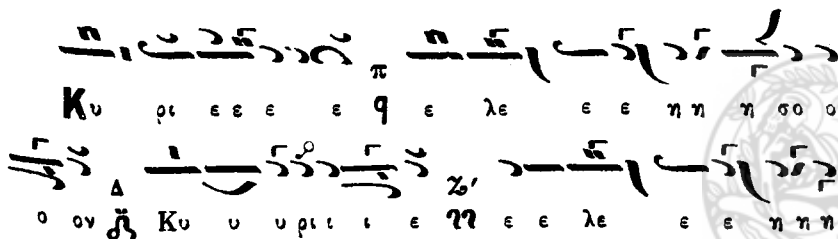 Κυ ρι ε ε ε ε ε π q ε λε ε ε η η η σο ο
ο ον Δ Κυ υ υ ρι ι ι ε Ζ′ ε ε λε ε ε η η η